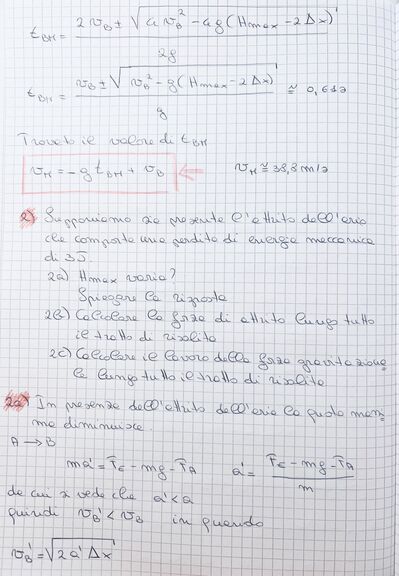 t_BH = 2 v_B ± √(4 v_B² - 4g (Hmax - 2Δx)) / 2g
t_BH = v_B ± √(v_B² - g (Hmax - 2Δx)) / g ≅ 0,61 s
Trovato il valore di t_BH
v_H = -g t_BH + v_B v_H ≅ 38,8 m/s
2) Supponiamo sia presente l'attrito dell'aria
che comporta una perdita di energia meccanica
di 3J.
2a) Hmax varia?
Spiegare la risposta
2b) Calcolare la forza di attrito lungo tutto
il tratto di risalita
2c) Calcolare il lavoro della forza gravitaziona
le lungo tutto il tratto di risalita
2a) In presenza dell'attrito dell'aria la quota mas
ma diminuisce.
A → B
ma' = F_E - mg - F_A a' = F_E - mg - F_A / m
da cui si vede che a' < a
quindi v_B' < v_B in quando
v_B' = √(2 a' Δx)